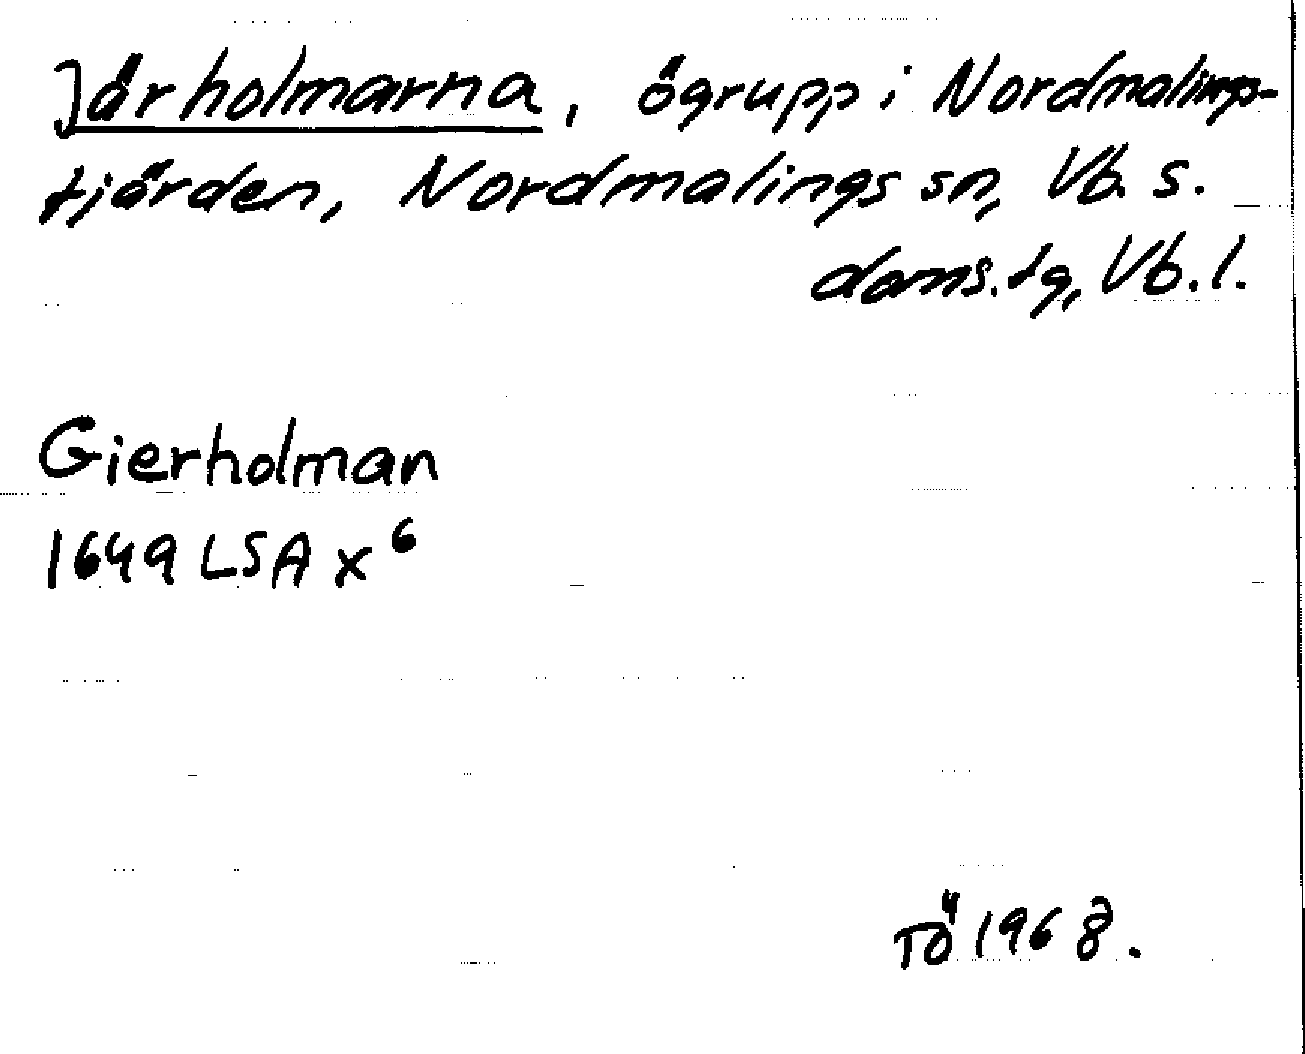 Järholmarna, ögrupp i Nordmalings-
fjärden, Nordmalings sn, Vb. s.
doms.tg, Vb.l.
Gierholman
1649 LSA X 6
TÖ 1968.